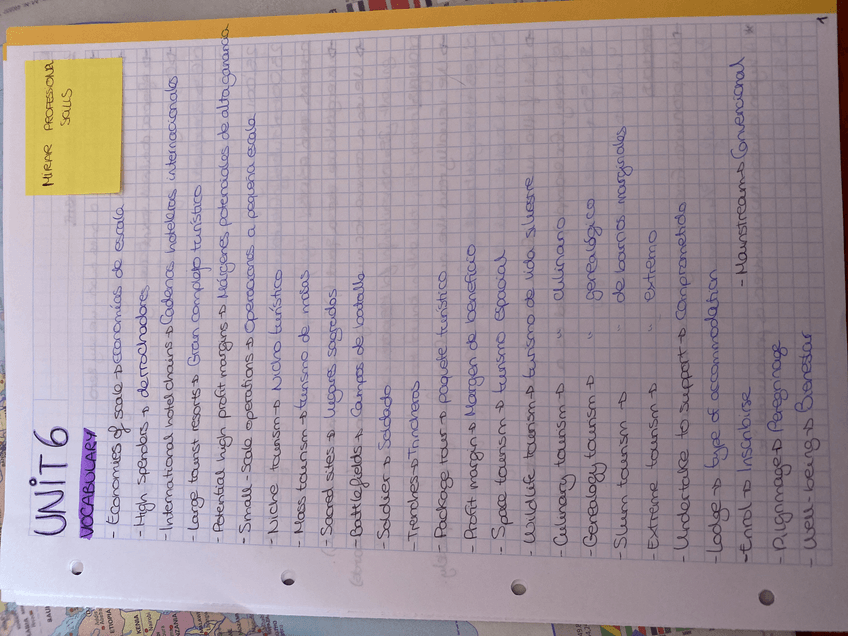 MIRAR PROFESSIONAL
SKILLS
UNIT 6
VOCABULARY
- Economies of scale → Economías de escala
- High spenders → derrochadores
- International hotel chains → Cadenas hoteleras internacionales
- Large tourist resorts → Gran complejo turístico
- Potential high profit margins → Márgenes potenciales de alta ganancia
- Small-scale operations → Operaciones a pequeña escala
- Niche tourism → Nicho turístico
- Mass tourism → turismo de masas
- Sacred sites → lugares sagrados
- Battlefields → Campos de batalla
- Soldier → Soldado
- Trenches → Trincheras
- Package tour → paquete turístico
- Profit margin → Margen de beneficio
- Space tourism → turismo espacial
- Wildlife tourism → turismo de vida silvestre
- Culinary tourism → " culinario
- Genealogy tourism → " genealógico
- Slum tourism → " de barrios marginales
- Extreme tourism → " extremo
- Undertake to support → Comprometido
- Lodge → type of accommodation
- Enrol → Inscribirse
- Mainstream → Convencional
- Pilgrimage → Peregrinaje
- Well-being → Bienestar
1